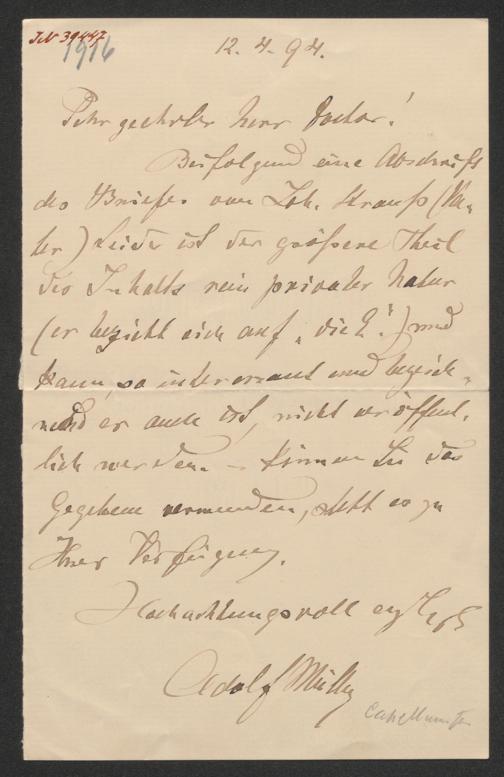 IN 39447
1916
12. 4. 94.
Sehr geehrter Herr Doctor!
Beifolgend eine Abschrift
des Briefes von Joh. Strauß (Va-
ter) Leider ist der größere Theil
des Inhalts rein privater Natur
(er bezieht sich auf „die
und
kann, so interessant und bezeich-
nend er auch ist, nicht veröffent-
lich werden. – Können Sie das
Gegebene verwenden, steht es zu
Ihrer Verfügung.
Hochachtungsvoll
Adolf Müller